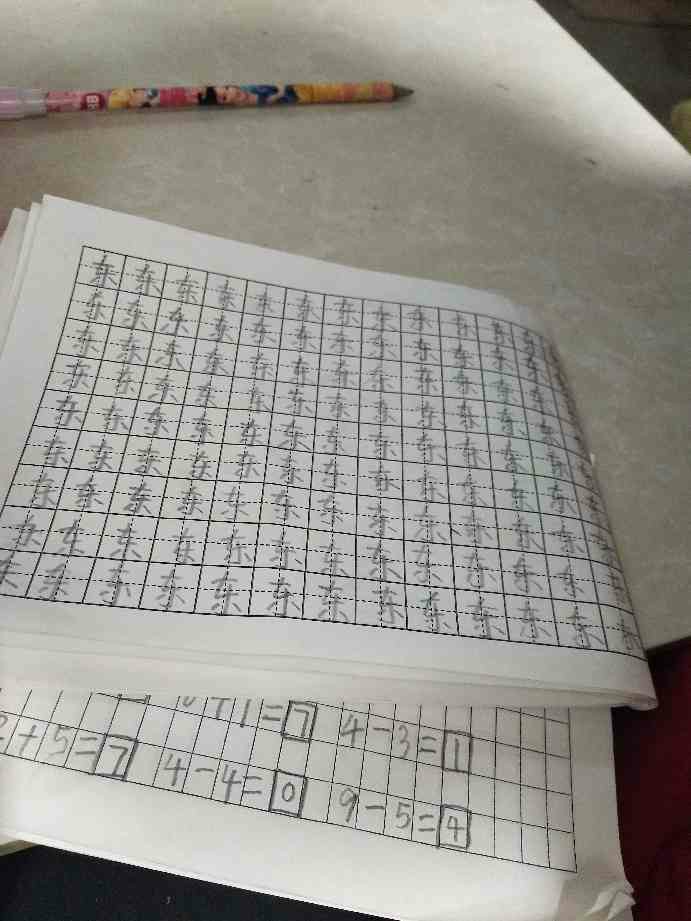 东东东东东东东东东东东东东
东东东东东东东东东东东东东
东东东东东东东东东东东东东
东东东东东东东东东东东东东
东东东东东东东东东东东东东
东东东东东东东东东东东东东
东东东东东东东东东东东东东
东东东东东东东东东东东东东
东东东东东东东东东东东东东
+1=7 4-3=1
2+5=7 4-4=0 9-5=4